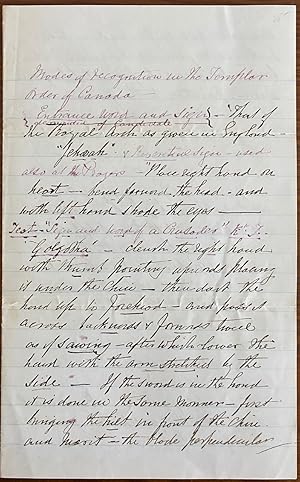 Modes of recognition in the Templar
Order of Canada
Entrance Word and Sign} - "That of
demanded of Candidate
the Royal Arch as given in England -
"Jehovah" & Penitential sign - used
also at the Prayers - "Place right hand on
heart - bend forward the head - and
with left hand shade the eyes -
"Sign and word of a Crusader" Kt. T.
"Golgotha" - clench the right hand
with thumb pointing upwards placing
it under the Chin - then dart the
hand up to forehead - and pass it
across backwards & forwards twice
as if Sawing - after which lower the
hand with the arm stretched by the
side - If the sword is in the hand
it is done in the same manner - first
bringing the hilt in front of the Chin
and - the blade perpendicular